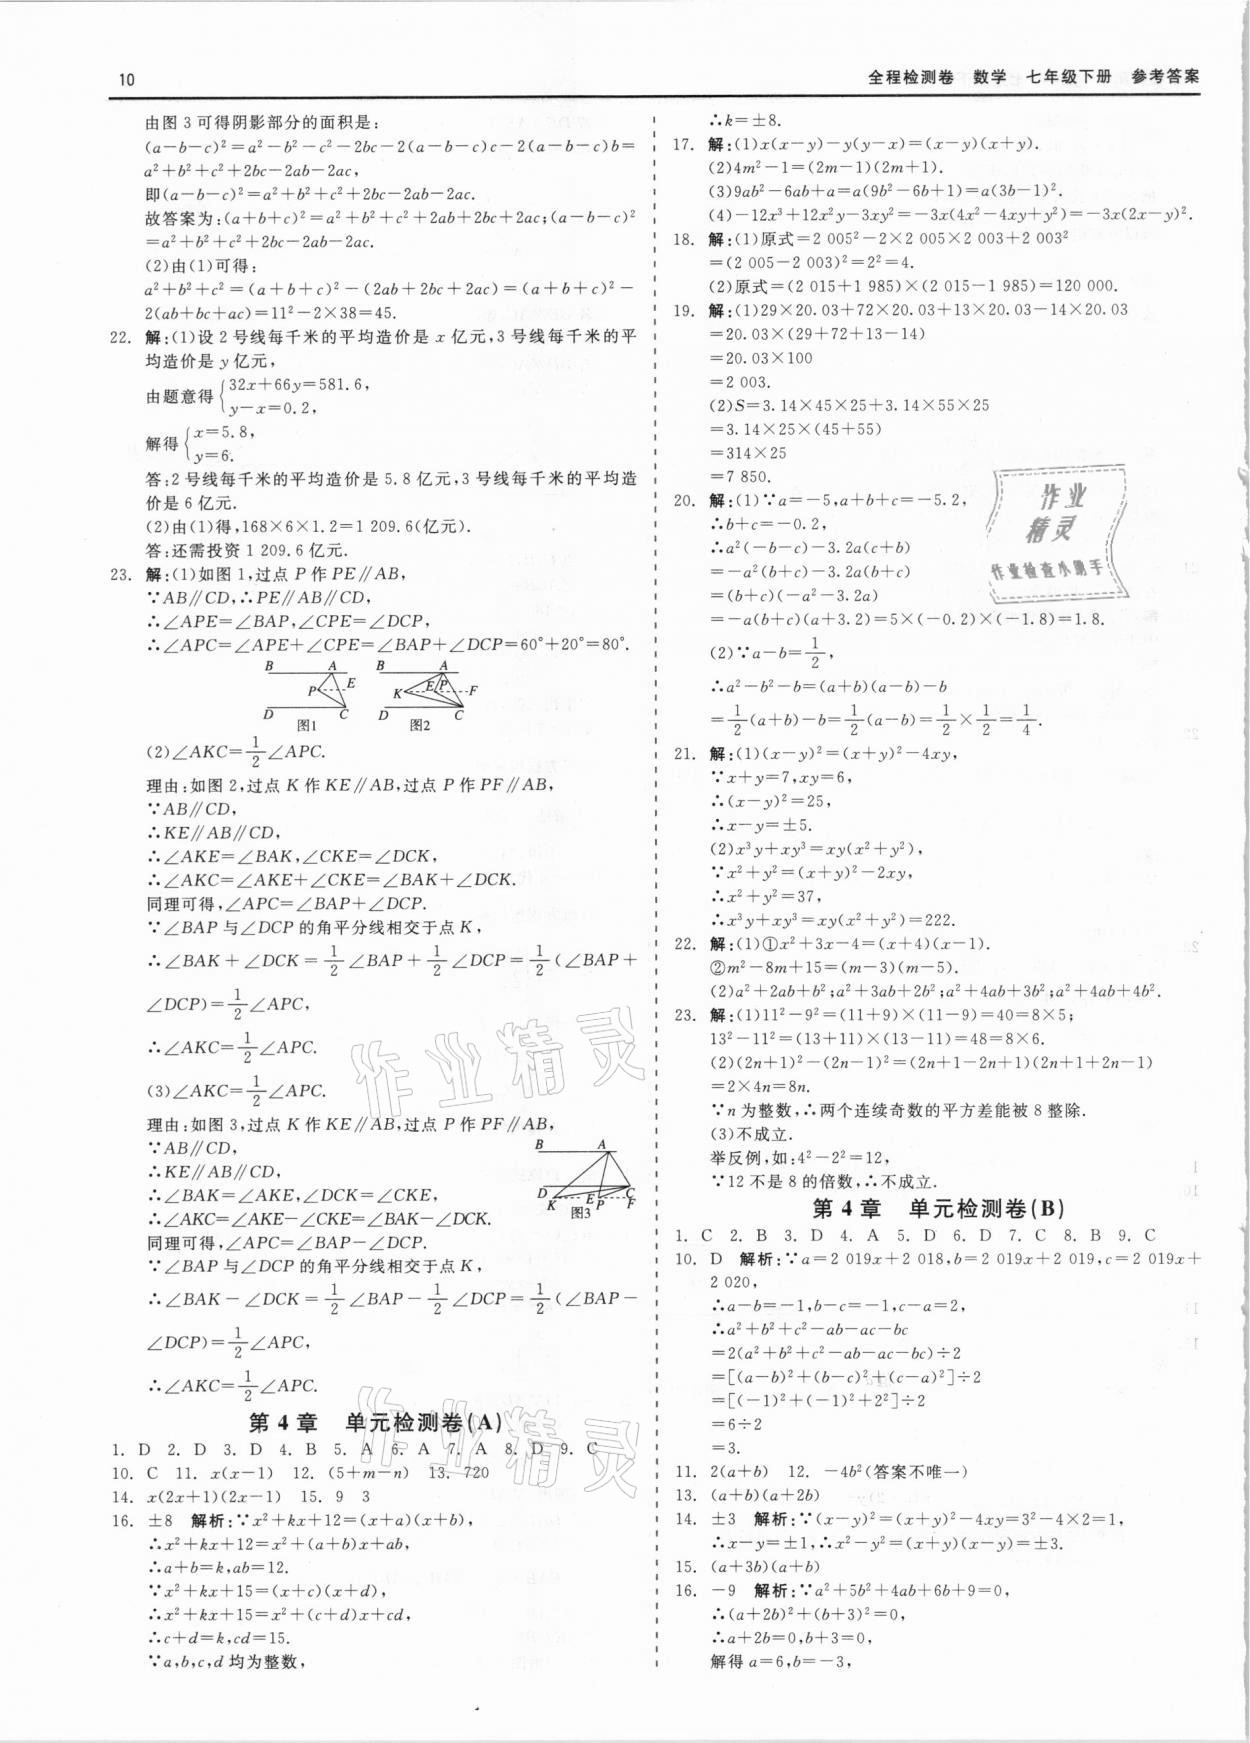 10
全程检测卷 数学 七年级下册 参考答案
由图3可得阴影部分的面积是:
(a−b−c)²=a²−b²−c²−2bc−2(a−b−c)c−2(a−b−c)b=
a²+b²+c²+2bc−2ab−2ac,
即(a−b−c)²=a²+b²+c²+2bc−2ab−2ac.
故答案为:(a+b+c)²=a²+b²+c²+2ab+2bc+2ac;(a−b−c)²
=a²+b²+c²+2bc−2ab−2ac.
(2)由(1)可得:
a²+b²+c²=(a+b+c)²−(2ab+2bc+2ac)=(a+b+c)²−
2(ab+bc+ac)=11²−2×38=45.
22. 解:(1)设2号线每千米的平均造价是x亿元,3号线每千米的平
均造价是y亿元,
由题意得{32x+66y=581.6,
y−x=0.2,
解得{x=5.8,
y=6.
答:2号线每千米的平均造价是5.8亿元,3号线每千米的平均造
价是6亿元.
(2)由(1)得,168×6×1.2=1 209.6(亿元).
答:还需投资1 209.6亿元.
23. 解:(1)如图1,过点P作PE∥AB,
∵AB∥CD,∴PE∥AB∥CD,
∴∠APE=∠BAP,∠CPE=∠DCP,
∴∠APC=∠APE+∠CPE=∠BAP+∠DCP=60°+20°=80°.
B A P E D C 图1
B A K E P F D C 图2
(2)∠AKC=1/2∠APC.
理由:如图2,过点K作KE∥AB,过点P作PF∥AB,
∵AB∥CD,
∴KE∥AB∥CD,
∴∠AKE=∠BAK,∠CKE=∠DCK,
∴∠AKC=∠AKE+∠CKE=∠BAK+∠DCK.
同理可得,∠APC=∠BAP+∠DCP.
∵∠BAP与∠DCP的角平分线相交于点K,
∴∠BAK+∠DCK=1/2∠BAP+1/2∠DCP=1/2(∠BAP+
∠DCP)=1/2∠APC,
∴∠AKC=1/2∠APC.
(3)∠AKC=1/2∠APC.
理由:如图3,过点K作KE∥AB,过点P作PF∥AB,
∵AB∥CD,
∴KE∥AB∥CD,
∴∠BAK=∠AKE,∠DCK=∠CKE,
∴∠AKC=∠AKE−∠CKE=∠BAK−∠DCK.
同理可得,∠APC=∠BAP−∠DCP.
B A D C K E P F 图3
∵∠BAP与∠DCP的角平分线相交于点K,
∴∠BAK−∠DCK=1/2∠BAP−1/2∠DCP=1/2(∠BAP−
∠DCP)=1/2∠APC,
∴∠AKC=1/2∠APC.
第4章 单元检测卷(A)
1. D 2. D 3. D 4. B 5. A 6. A 7. A 8. D 9. C
10. C 11. x(x−1) 12. (5+m−n) 13. 720
14. x(2x+1)(2x−1) 15. 9 3
16. ±8 解析:∵x²+kx+12=(x+a)(x+b),
∴x²+kx+12=x²+(a+b)x+ab,
∴a+b=k,ab=12.
∵x²+kx+15=(x+c)(x+d),
∴x²+kx+15=x²+(c+d)x+cd,
∴c+d=k,cd=15.
∵a,b,c,d均为整数,
∴k=±8.
17. 解:(1)x(x−y)−y(y−x)=(x−y)(x+y).
(2)4m²−1=(2m−1)(2m+1).
(3)9ab²−6ab+a=a(9b²−6b+1)=a(3b−1)².
(4)−12x³+12x²y−3xy²=−3x(4x²−4xy+y²)=−3x(2x−y)².
18. 解:(1)原式=2 005²−2×2 005×2 003+2 003²
=(2 005−2 003)²=2²=4.
(2)原式=(2 015+1 985)×(2 015−1 985)=120 000.
19. 解:(1)29×20.03+72×20.03+13×20.03−14×20.03
=20.03×(29+72+13−14)
=20.03×100
=2 003.
(2)S=3.14×45×25+3.14×55×25
=3.14×25×(45+55)
=314×25
=7 850.
20. 解:(1)∵a=−5,a+b+c=−5.2,
∴b+c=−0.2,
∴a²(−b−c)−3.2a(c+b)
=−a²(b+c)−3.2a(b+c)
=(b+c)(−a²−3.2a)
=−a(b+c)(a+3.2)=5×(−0.2)×(−1.8)=1.8.
(2)∵a−b=1/2,
∴a²−b²−b=(a+b)(a−b)−b
=1/2(a+b)−b=1/2(a−b)=1/2×1/2=1/4.
21. 解:(1)(x−y)²=(x+y)²−4xy,
∵x+y=7,xy=6,
∴(x−y)²=25,
∴x−y=±5.
(2)x³y+xy³=xy(x²+y²),
∵x²+y²=(x+y)²−2xy,
∴x²+y²=37,
∴x³y+xy³=xy(x²+y²)=222.
22. 解:(1)①x²+3x−4=(x+4)(x−1).
②m²−8m+15=(m−3)(m−5).
(2)a²+2ab+b²;a²+3ab+2b²;a²+4ab+3b²;a²+4ab+4b².
23. 解:(1)11²−9²=(11+9)×(11−9)=40=8×5;
13²−11²=(13+11)×(13−11)=48=8×6.
(2)(2n+1)²−(2n−1)²=(2n+1−2n+1)(2n+1+2n−1)
=2×4n=8n.
∵n为整数,∴两个连续奇数的平方差能被8整除.
(3)不成立.
举反例,如:4²−2²=12,
∵12不是8的倍数,∴不成立.
第4章 单元检测卷(B)
1. C 2. B 3. D 4. A 5. D 6. D 7. C 8. B 9. C
10. D 解析:∵a=2 019x+2 018,b=2 019x+2 019,c=2 019x+
2 020,
∴a−b=−1,b−c=−1,c−a=2,
∴a²+b²+c²−ab−ac−bc
=2(a²+b²+c²−ab−ac−bc)÷2
=[(a−b)²+(b−c)²+(c−a)²]÷2
=[(−1)²+(−1)²+2²]÷2
=6÷2
=3.
11. 2(a+b) 12. −4b²(答案不唯一)
13. (a+b)(a+2b)
14. ±3 解析:∵(x−y)²=(x+y)²−4xy=3²−4×2=1,
∴x−y=±1,∴x²−y²=(x+y)(x−y)=±3.
15. (a+3b)(a+b)
16. −9 解析:∵a²+5b²+4ab+6b+9=0,
∴(a+2b)²+(b+3)²=0,
∴a+2b=0,b+3=0,
解得a=6,b=−3,
作业
精灵
作业检查小助手
作业精灵
作业精灵